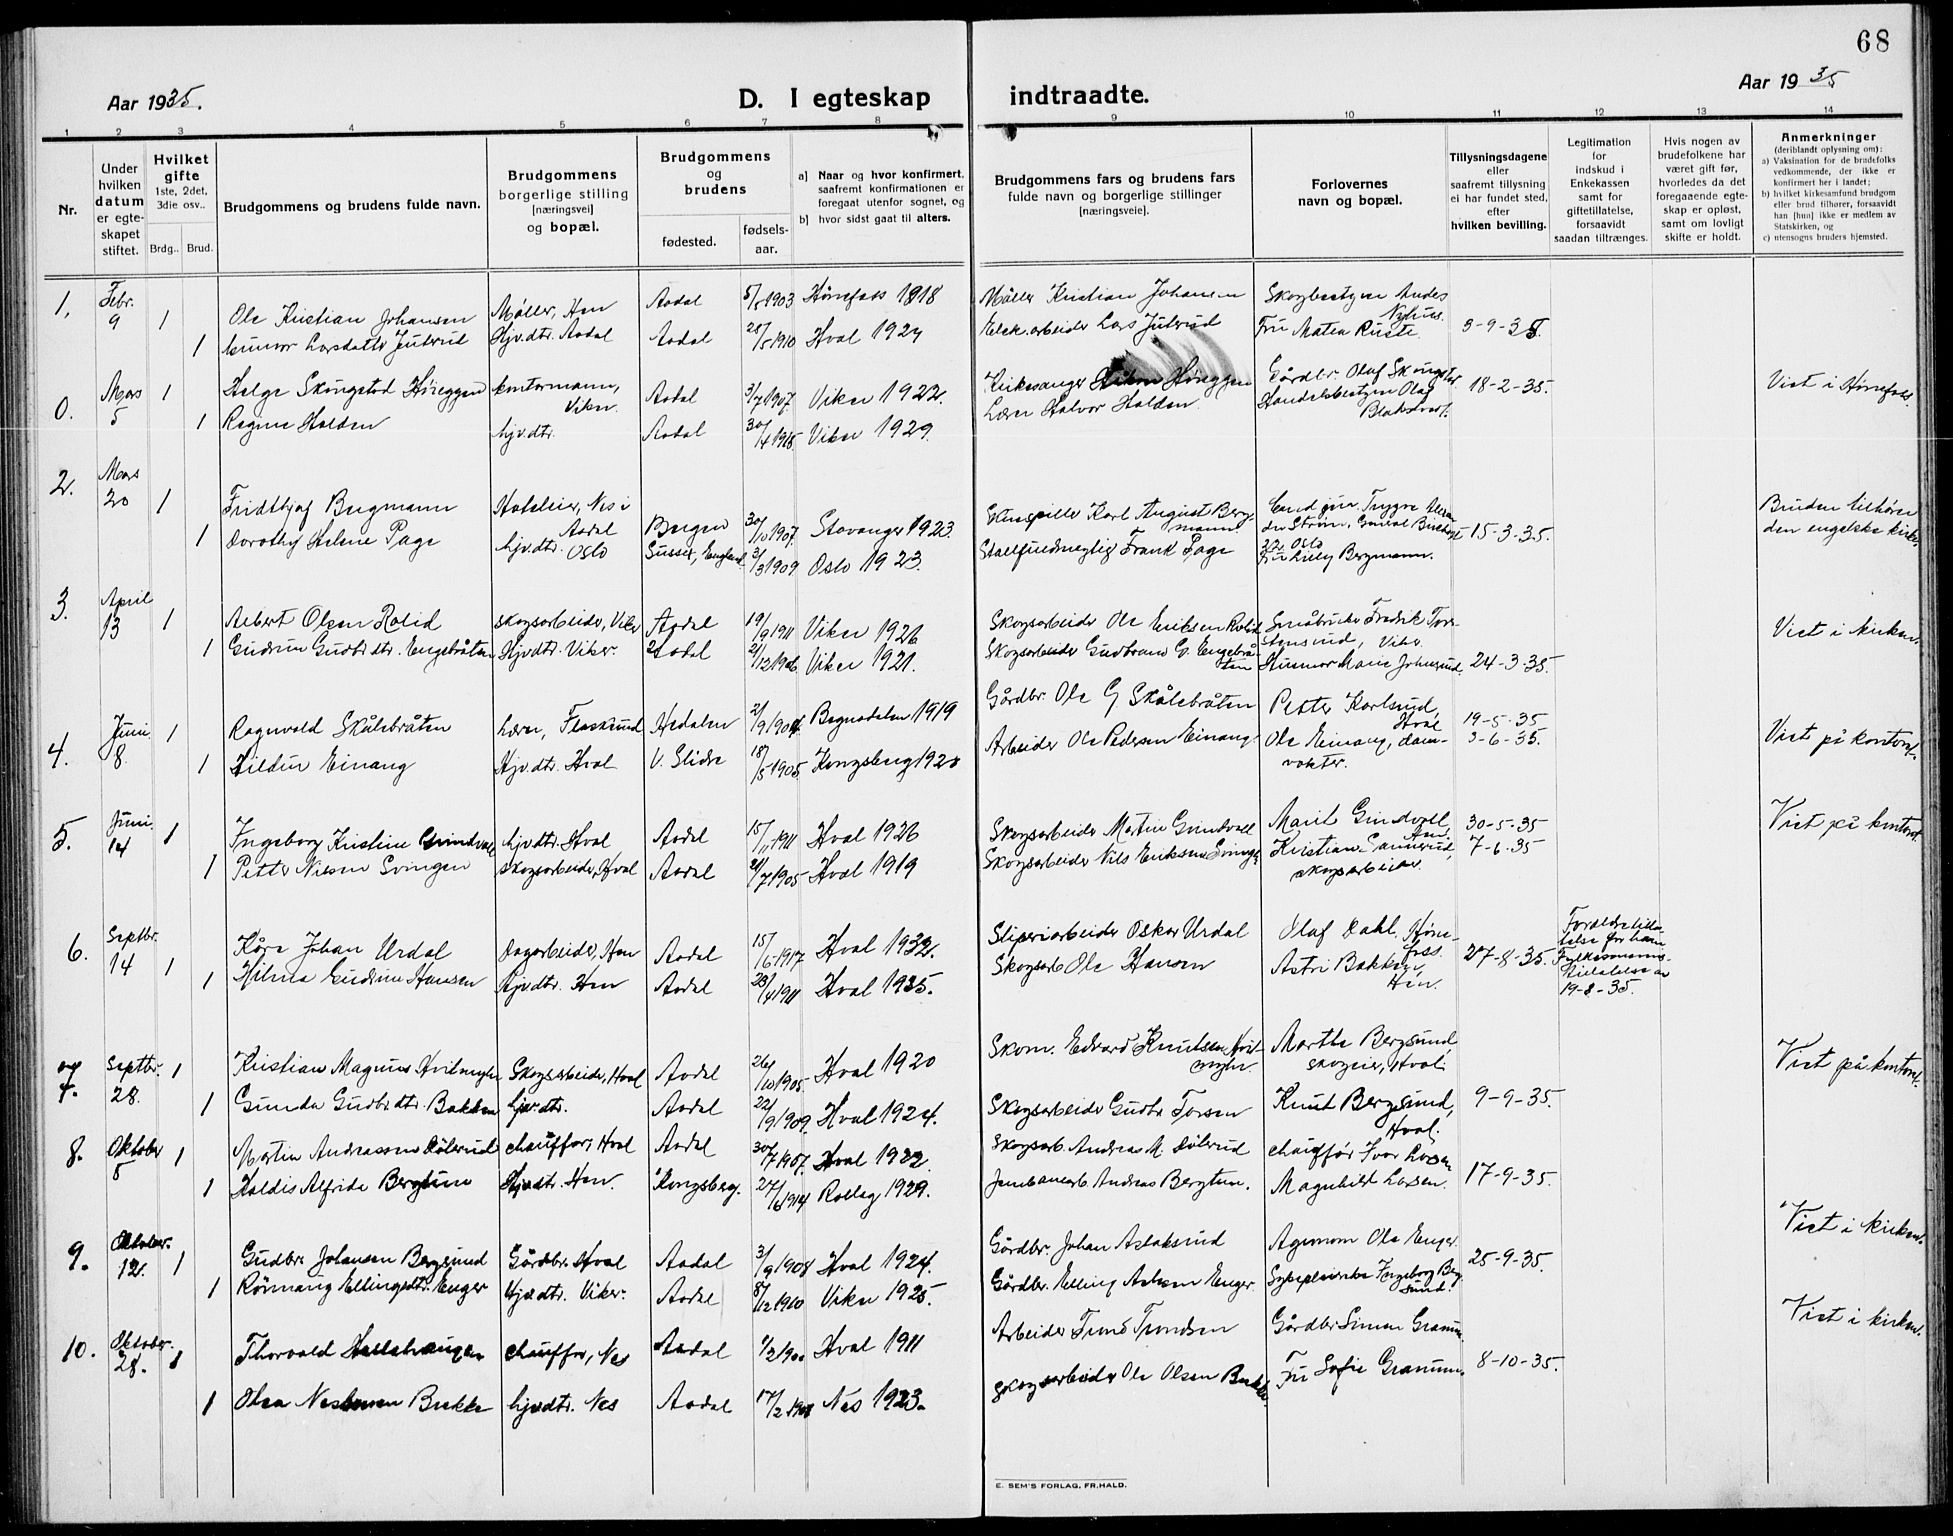 68
Aar 1935.
D. I egteskap indtraadte.
Aar 1935
1 2 3 4 5 6 7 8 9 10 11 12 13 14
Nr.
Under hvilken datum er egteskapet stiftet.
Hvilket gifte
1ste, 2det, 3die osv..
Brdg.. Brud.
Brudgommens og brudens fulde navn.
Brudgommens borgerlige stilling [næringsvei] og bopæl.
Brudgommens og brudens
fødested.
fødselsaar.
a) Naar og hvor konfirmert, saafremt konfirmationen er foregaat utenfor sognet, og
b) hvor sidst gaat til alters.
Brudgommens fars og brudens fars fulde navn og borgerlige stillinger [næringsveie].
Forlovernes navn og bopæl.
Tillysningsdagene eller saafremt tillysning ei har fundet sted, efter hvilken bevilling.
Legitimation for indskud i Enkekassen samt for giftetillatelse, forsaavidt saadan tiltrænges.
Hvis nogen av brudefolkene har været gift før, hvorledes da det foregaaende egteskap er opløst, samt om lovligt skifte er holdt.
Anmerkninger
(deriblandt oplysning om):
a) Vaksination for de brudefolks vedkommende, der ikke er konfirmert her i landet;
b) hvilket kirkesamfund brudgom eller brud tilhører, forsaavidt han [hun] ikke er medlem av Statskirken, og
c) utensogns bruders hjemsted.
1. Febr. 9 1 Ole Kristian Johansen Møller, Hen Aadal 5/5 1903 Hønefoss 1918 Møller Kristian Johansen Skogbestyrer Nyhus.
1 Larsdatter Jutrud Hjv.dtr. Aadal Aadal 28/5 1910 Hval 1924 Elek.arbeider Lars Jutrud Fru Matea Ruste.
0. Mars 5 1 Helge Skungstad Høieggen kontormann, Viker. Aadal 3/7 1907. Viker 1922. Kirkesanger Høieggen Gårdbr. Olaf Skungstad 18-2-35. Viet i Hønefoss.
1 Ragna Halden hjv.dtr. Aadal Viker 1929. Lærer Halvor Halden Handelsbestyrer Olaf
2. Mars 20 1 Fridthjof Bergmann Hoteleier, Nes i Aadal Bergen 30/10 1907. Stavanger 1923. Karl August Bergmann 15-3-35. Bruden tilhører den engelske kirke.
1 Dorothy Helene Page hjv.dtr. Oslo Sussex, England 31/3 1909 Oslo 1923. Frank Page Oslo Fru Lilly Bergmann.
3. April 13 1 Albert Olsen Rolid skogsarbeider, Viker Aadal 19/9 1911 Viker 1926 Skogsarbeider Ole Eriksen Rolid Småbruker Fredrik Viker. Viet i kirken.
1 Gudrun Gudbr.dtr. Engebråten Hjv.dtr. Viker. Aadal 21/12 1906 Viker 1921. Skogsarbeider Gudbrand G. Engebråten Marie 24-3-35.
4. Juni 8. 1 Ragnvald Skålebråten Lærer, Hedalen Begnadalen 1919 Gårdbr. Ole G Skålebråten Petter Karlsrud, Hval 19-5-35 Viet på kontoret.
1 Hildur Einang Hjv.dtr. Hval V. Slidre 18/5 1905 Kongsberg 1920 Arbeider Ole Pedersen Einang Ole Einang, damvokter. 3-6-35.
5. Juni 14 1 Ingeborg Kristine Grindvoll hjv.dtr. Hval Aadal 15/11 1911 Hval 1926 Skogsarbeider Martin Grindvoll Marit Grindvoll 30-5-35 Viet på kontoret.
1 Petter Nilsen Svingen skogsarbeider, Hval Aadal 1905 Hval 1919 Skogsarbeider Nils Eriksen Svingen Kristian skogsarbeider. 7-6-35
6. Septbr. 14 1 Kåre Johan Urdal Hen Aadal 15/6 1917 Hval 1932. Sliperiarbeider Oskar Urdal Olaf Dahl, Hønefoss. 27-8-35. Foreldretillatelse for ham Fylkesmanns tillatelse av 19-8-35.
1 Hilma Gudrun Hansen Hjv.dtr. Hen Aadal Hval 1925. Skogsarb. Ole Hansen Astri Bakken, Hen.
7. Septbr. 28. 1 Kristian Magnus Skogsarbeider, Hval Aadal 26/10 1905. Hval 1920 Skom. Edvard Knutsen Marthe Bergsund, skogeier, Hval. Viet på kontoret.
1 Gunda Gudbr.dtr. Bakken hjv.dtr. Aadal 22/9 1909. Hval 1924. Skogsarbeider Gudbr. Torsen Knut Bergsund, Hval. 9-9-35.
8. Oktober 5 1 Martin Andreassen Dølerud chauffør, Hval Aadal 30/7 1907. Hval 1922. Skogsarb. Andreas M. Dølerud chauffør Ivar Larsen
1 Haldis Alfride Bergtun Hjv.dtr. Hen. Kongsberg. 27/6 1914 Rollag 1929. Jernbanearb. Andreas Bergtun. Magnhild Larsen. 17-9-35.
9. Oktober. 12. 1 Gudbr. Johansen Bergsund Gårdbr. Hval Aadal 3/9 1908 Hval 1924. Gårdbr. Johan Aslaksrud Agronom Ole Enger. 25-9-35. Viet i kirken.
1 Rønnaug Ellingsdtr. Enger Hjv.dtr. Viker. Aadal 8/12 1910 Viker 1925. Gårdbr. Elling Enger Sykepleierske Ingeborg Bergsund.
10. Oktober. 28. 1 Thorvald chauffør, Nes Aadal Hval 1911 Arbeider Trond Trondsen Gårdbr. Simen Granum. Viet i kirken.
1 Olea Bakke hjv.dtr. Nes Aadal 17/2 1908 Nes 1923. skogsarbeider Ole Olsen Bakke. Fru Sofie Granum. 8-10-35.
E. SEM'S FORLAG, FR.HALD.